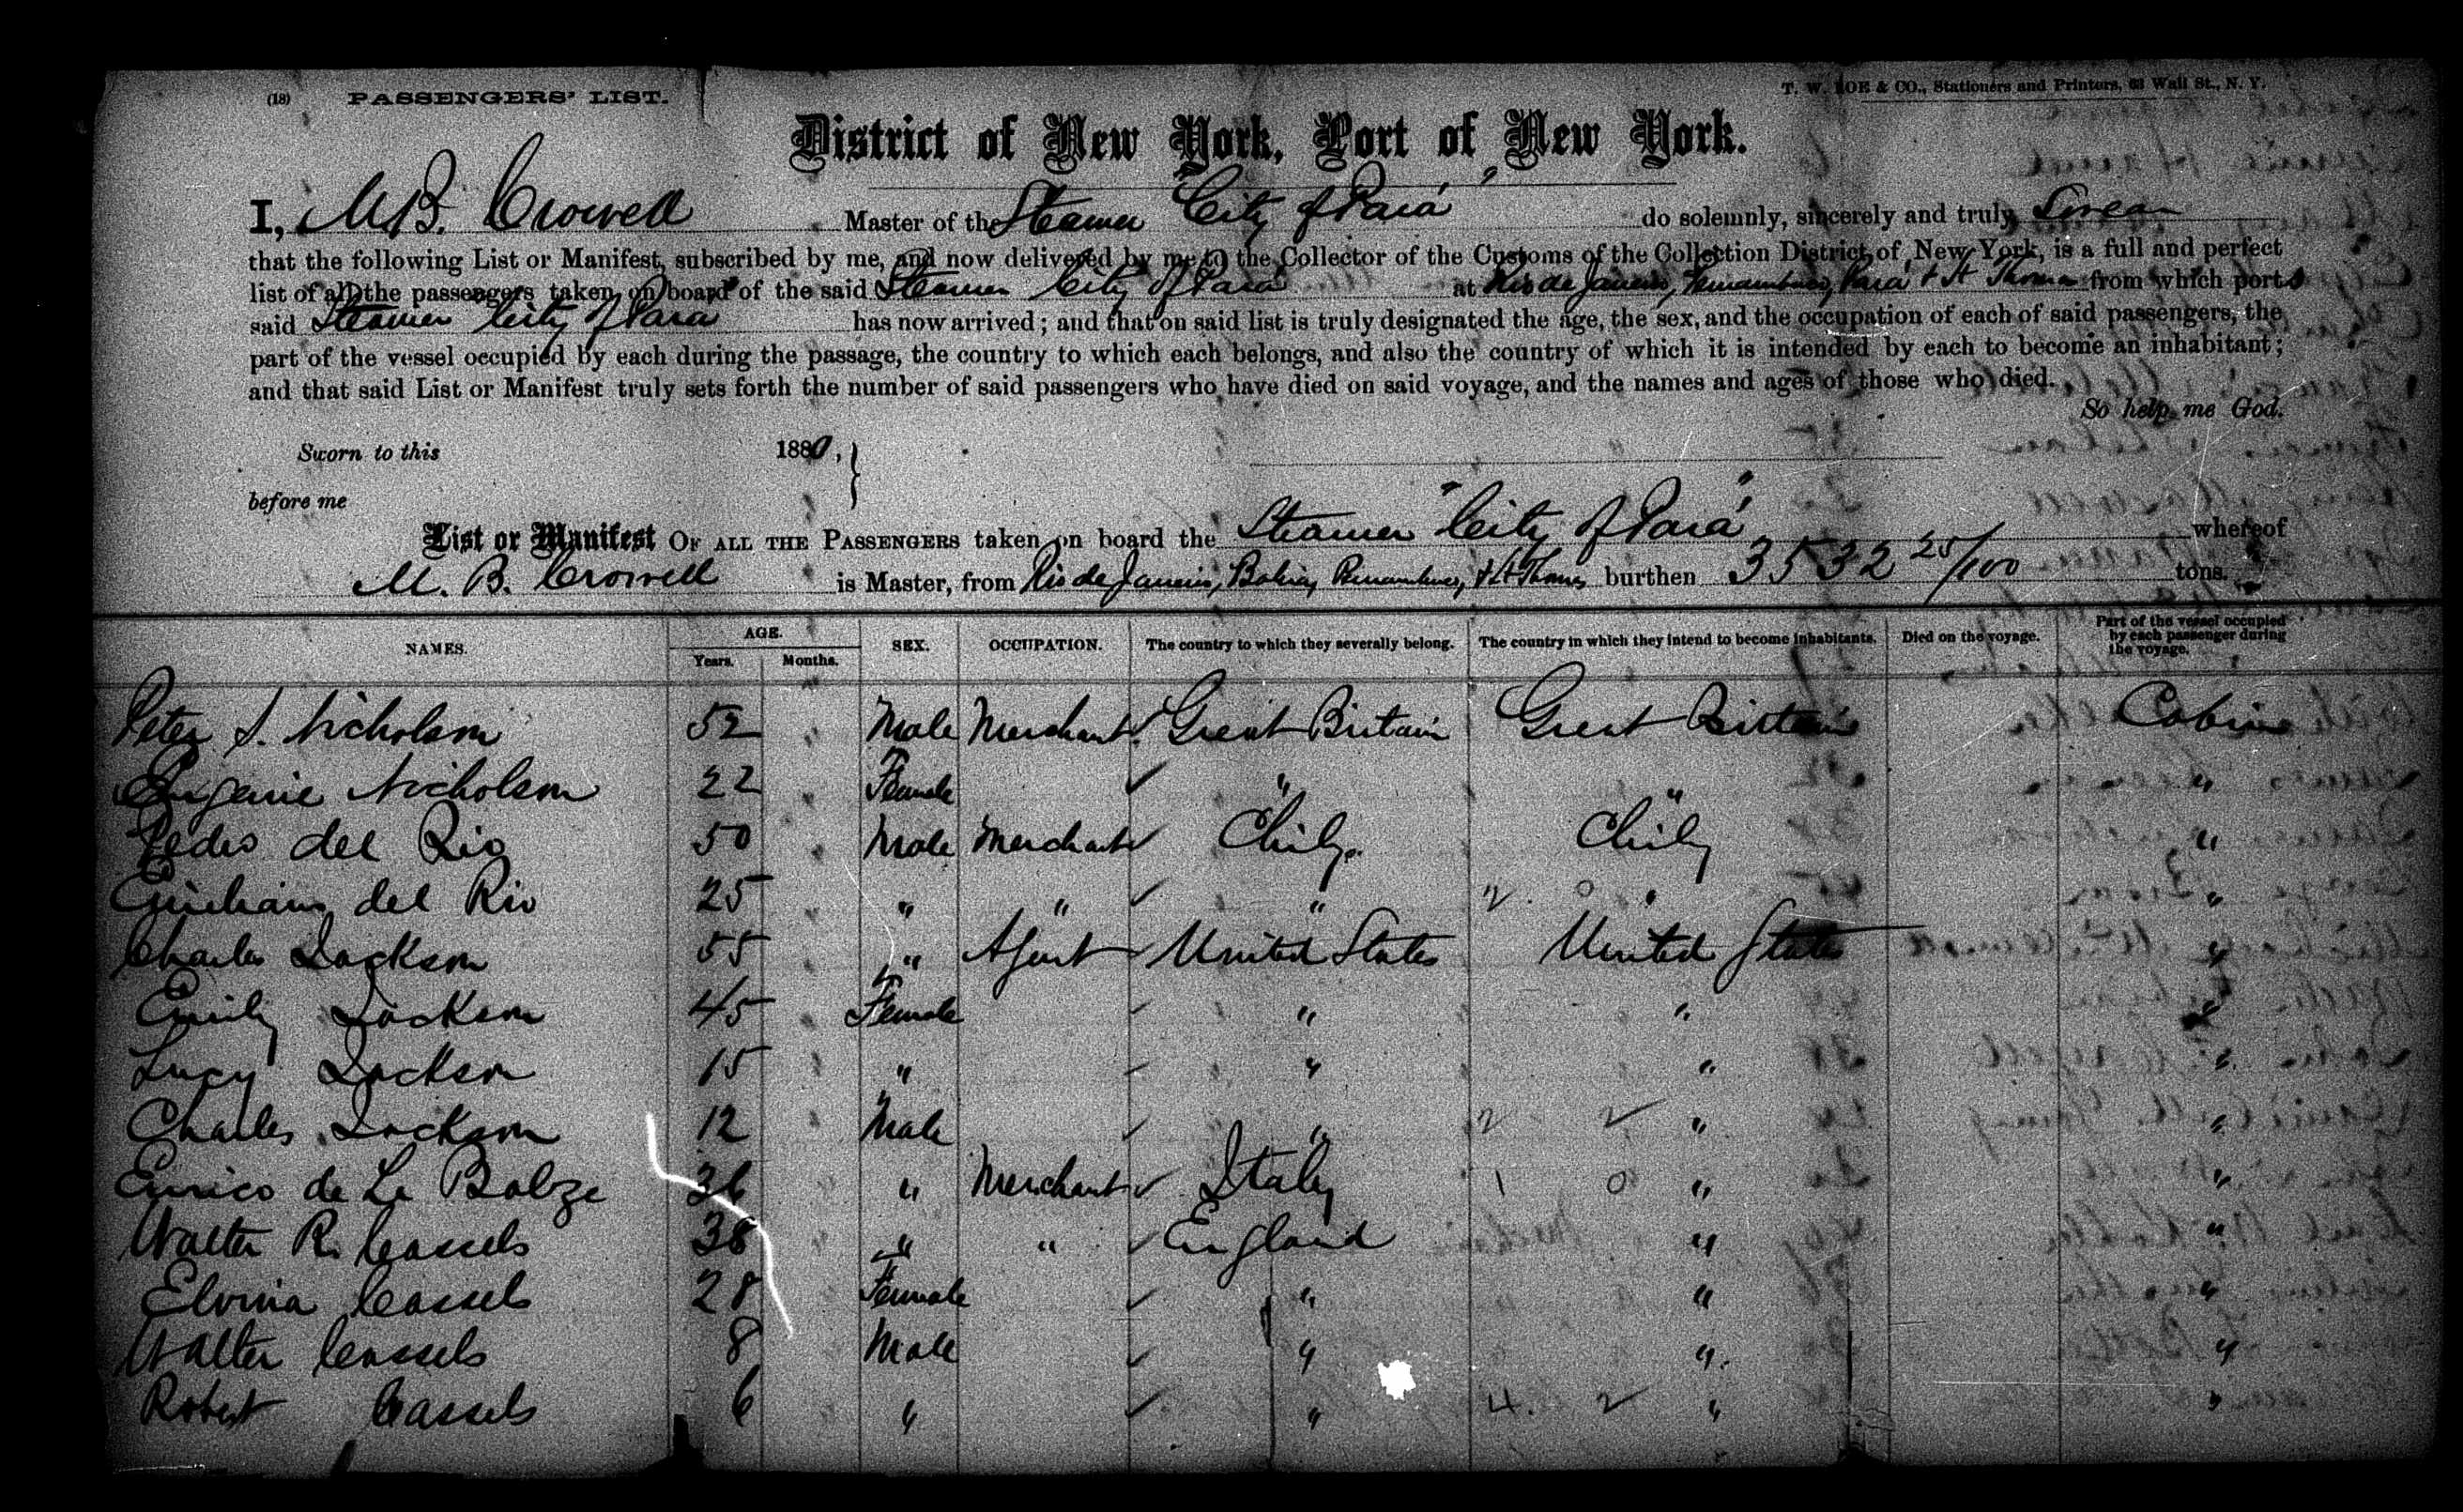 (18) PASSENGERS' LIST.
T. W. ROE & CO., Stationers and Printers, 61 Wall St., N. Y.
District of New York, Port of New York.
I, M.B. Crowell Master of the Steamer "City of Pará" do solemnly, sincerely and truly Swear
that the following List or Manifest, subscribed by me, and now delivered by me to the Collector of the Customs of the Collection District of New York, is a full and perfect
list of all the passengers taken on board of the said Steamer City of Pará at Rio de Janeiro, Pernambuco, Pará & St Thomas from which ports
said Steamer City of Pará has now arrived; and that on said list is truly designated the age, the sex, and the occupation of each of said passengers, the
part of the vessel occupied by each during the passage, the country to which each belongs, and also the country of which it is intended by each to become an inhabitant;
and that said List or Manifest truly sets forth the number of said passengers who have died on said voyage, and the names and ages of those who died.
So help me God.
Sworn to this 1880,
before me
List or Manifest OF ALL THE PASSENGERS taken on board the Steamer "City of Pará" whereof
M. B. Crowell is Master, from Rio de Janeiro, Bahia, Pernambuco, & St Thomas burthen 3532 25/100 tons.
NAMES. AGE. Years. Months. SEX. OCCUPATION. The country to which they severally belong. The country in which they intend to become inhabitants. Died on the voyage. Part of the vessel occupied by each passenger during the voyage.
Peter S. Nicholson 52 Male Merchant Great Britain Great Britain Cabin
Eugenie Nicholson 22 Female " " "
Pedro del Rio 50 Male Merchant Chily Chily "
del Rio 25 " " " 2. 0 " "
Charles Jackson 55 " Agent United States United States "
Emily Jackson 45 Female " " "
Lucy Jackson 15 " " " "
Charles Jackson 12 Male " 2 2 " "
Enrico de Le Balze 36 " Merchant Italy 1 0 " "
Walter R. Cassels 38 " " England " "
Elvina Cassels 28 Female " " "
Walter Cassels 8 Male " " "
Robert Cassels 6 " " 4. 2 " "